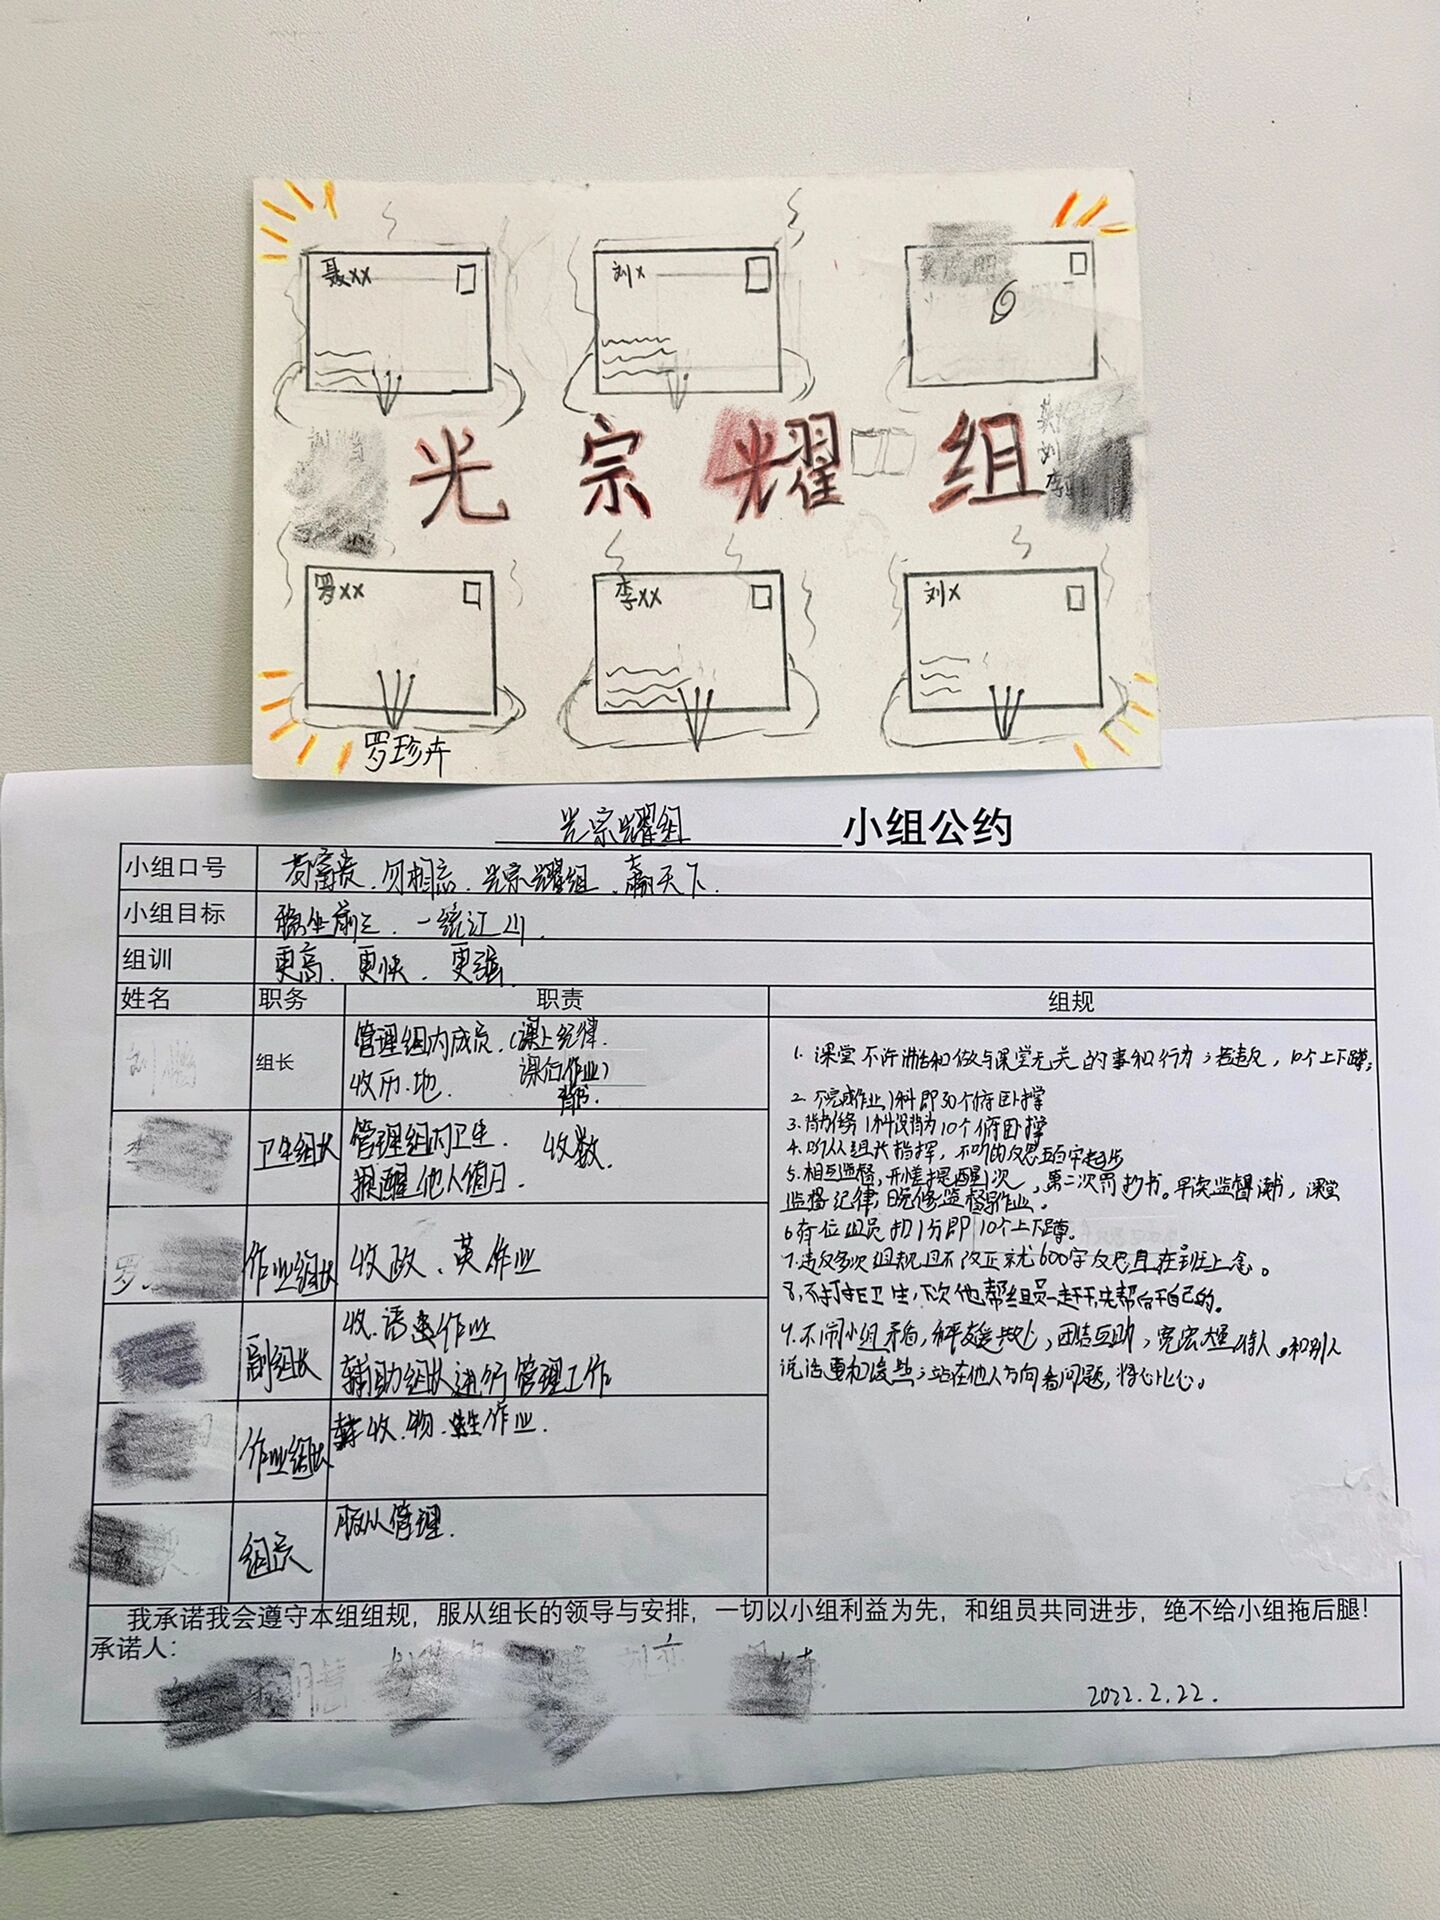 聂xx
刘x
光宗耀组
罗xx
李xx
刘x
罗珍卉
光宗耀组 小组公约
小组口号 苟富贵、勿相忘、光宗耀组、赢天下.
小组目标 稳坐前三、一统江川.
组训 更高、更快、更强.
姓名 职务 职责 组规
组长
管理组内成员.(课上纪律.
收历、地. 课后作业)
背书.
卫生组长
管理组内卫生. 收数.
提醒他人值日.
作业组长 收政、英作业
副组长
收.语 作业
辅助组长进行管理工作
作业组长 收.物. 生作业.
组员 服从管理.
1. 课堂不许讲话和做与课堂无关的事和行为；若违反，10个上下蹲；
2. 不完成作业1科即30个俯卧撑
3. 背书任务1科没背为10个俯卧撑
4. 听从组长指挥，不听的反思五百字起步
5. 相互监督，开差提醒1次，第二次罚抄书。早读监督读书，课堂
监督纪律，晚修监督写作业。
6 每位组员扣1分即10个上下蹲。
7. 违反多次组规且不改正就600字反思且在班上念。
8. 不打扫卫生，下次他帮组员一起干，先帮 干自己的。
9. 不闹小组矛盾，和平友爱共处，团结互助，宽宏大量待人。和别人
说话要和谐些；站在他人方向看问题，将心比心。
我承诺我会遵守本组组规，服从组长的领导与安排，一切以小组利益为先，和组员共同进步，绝不给小组拖后腿！
承诺人：
2022.2.22.